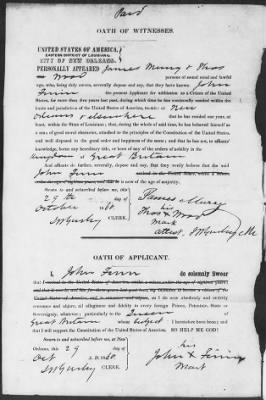 Paid
OATH OF WITNESSES.
UNITED STATES OF AMERICA,
EASTERN DISTRICT OF LOUISIANA,
CITY OF NEW ORLEANS.
PERSONALLY APPEARED James Murry & Thos
Wood persons of sound mind and lawful
age, who, being duly sworn, severally depose and say, that they have known John
Finn the present Applicant for admission as a Citizen of the United
States, for more than five years last past, during which time he has continually resided within the
limits and jurisdiction of the United States of America, to-wit: at New
Orleans & elsewhere that he has resided one year, at
least, within the State of Louisiana; that, during the whole of said time, he has behaved himself as
a man of good moral character, attached to the principles of the Constitution of the United States,
and well disposed to the good order and happiness of the same; and that he has not, to affiants'
knowledge, borne any hereditary title, or been of any of the orders of nobility in the
kingdom of Great Britain
And affiants do further, severally, depose and say, that they verily believe that the said
John Finn resided in the United States while under
the age of eighteen years, and is now of the age of majority.
Sworn to and subscribed before me, this
29th day of James Murry
October 1860 his
Thos X Wood
mark
CLERK.
OATH OF APPLICANT.
I, John Finn do solemnly Swear
that I resided in the United States while under the age of eighteen years;
United States of America, and to renounce and abjure, as I do now absolutely and entirely
renounce and abjure, all allegiance and fidelity to every foreign Prince, Potentate, State or
Sovereignty, whatever; particularly to the Queen of
Great Britain whose subject I heretofore have been; and
that I will support the Constitution of the United States of America. SO HELP ME GOD!
Sworn to and subscribed before me, at New
Orleans, this 29 day of his
Oct A. D. 1860 John X Finn
CLERK. Mark